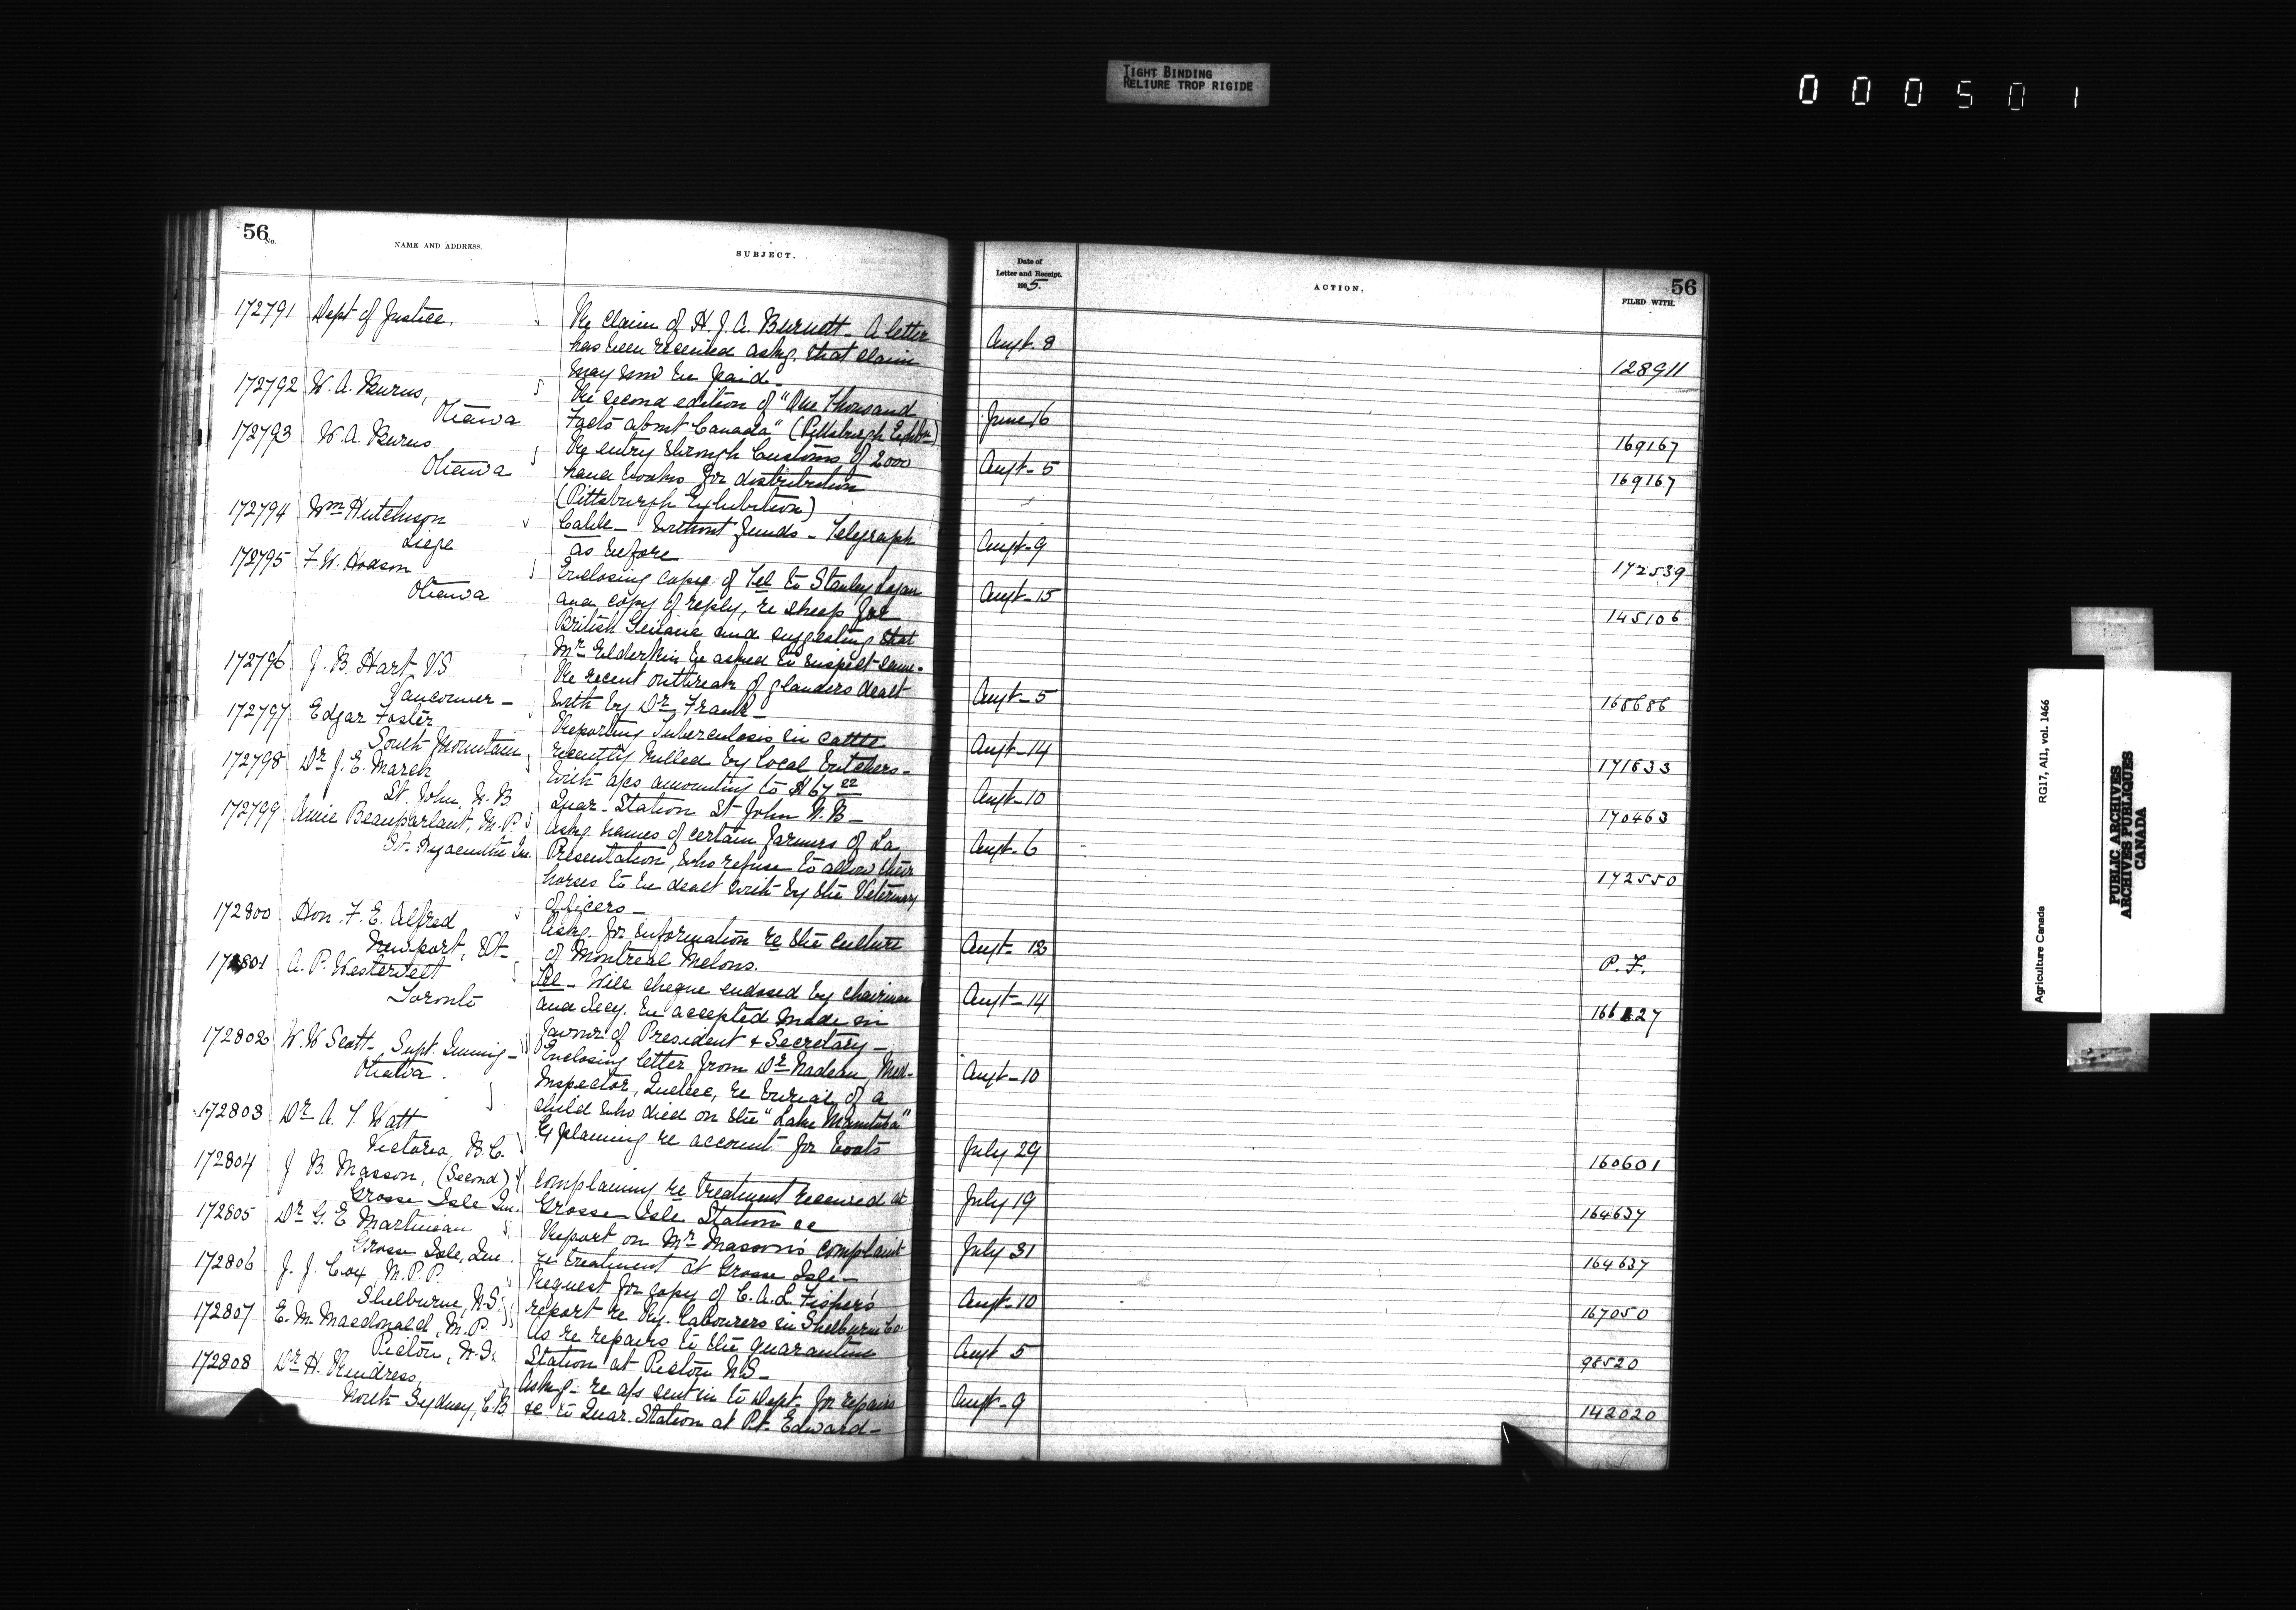 TIGHT BINDING
RELIURE TROP RIGIDE
000501
56
No.
NAME AND ADDRESS.
SUBJECT.
Date of
Letter and Receipt.
1905.
ACTION.
56
FILED WITH.
172791 Dept of Justice. Re claim of H. J. A. Burnett - A letter Augt. 8
has been received askg. that claim 128911
may now be paid -
172792 W. A. Burns, Re second edition of "One Thousand June 16
Ottawa Facts about Canada" (Pittsburgh Exhibn) 169167
172793 W. A. Burns Re entry through Customs of 2000 Augt - 5
Ottawa hand books for distribution 169167
(Pittsburgh Exhibition)
172794 Wm Hutchison Cable - Without funds - Telegraph Augt - 9
Liege as before 172539
172795 F. W. Hodson Enclosing copy of Tel to Stanley Logan Augt - 15
Ottawa and copy of reply, re sheep for 145106
British Guiana and suggesting that
Mr Elderkin be asked to inspect same.
172796 J. B. Hart V.S Re recent outbreak of glanders dealt Augt - 5
Vancouver - with by Dr Frank - 168686
172797 Edgar Foster Reporting Tuberculosis in cattle Augt - 14
South Mountain recently killed by local butchers - 171633
172798 Dr J. E. March With a/cs amounting to $67 22 Augt - 10
St. John, N. B. Quar - Station St John N. B - 170463
172799 Amie Beauparlant, M. P. Askg. names of certain farmers of La Augt - 6
St. Hyacinthe Que. Presentation, who refuse to allow their
horses to be dealt with by the Veterinary 172550
Officers -
172800 Hon. F. E. Alfred Askg. for information re the culture Augt - 12
Newport, Vt - of Montreal Melons. P. F.
172801 A. P. Westervelt Tel - Will cheque endosed by chairman Augt - 14
Toronto and Secy. be accepted made in 166 27
favour of President & Secretary -
172802 W. W Scott - Supt. Immig - Enclosing letter from Dr Nadeau, Med. Augt - 10
Ottawa. Inspector, Quebec, re burial of a
child who died on the "Lake Manitoba"
172803 Dr A. T. Watt Explaining re account for boats July 29
Victoria, B. C. 160601
172804 J B. Masson, (Second) Complaining re treatment received at July 19
Grosse Isle Que. Grosse Isle Station 164637
172805 Dr G. E Martineau Report on Mr Masson's complaint July 31
Grosse Isle, Que. re treatment at Grosse Isle - 164637
172806 J. J. Cox, M. P. P. Request for copy of C. A. L. Fisher's Augt - 10
Shelburne, N.S. report re Ry. Labourers in Shelburne Co. 167050
172807 E. M. Macdonald, M. P. As re repairs to the quarantine Augt 5
Pictou, N.S. Station at Pictou N.S - 98520
172808 Dr H. Rindress, Askg - re a/s sent in to Dept. for repairs Augt - 9
North Sydney, C. B. &c to Quar. Station at Pt. Edward - 142020
Agriculture Canada RG17, AI1, vol. 1466
PUBLIC ARCHIVES
ARCHIVES PUBLIQUES
CANADA